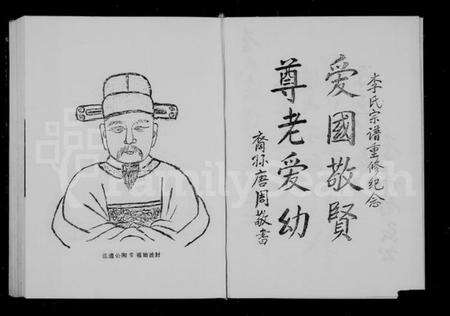 李氏宗谱重修纪念
愛國敬賢
尊老爱幼
裔孙唐周敬書
FamilySearch